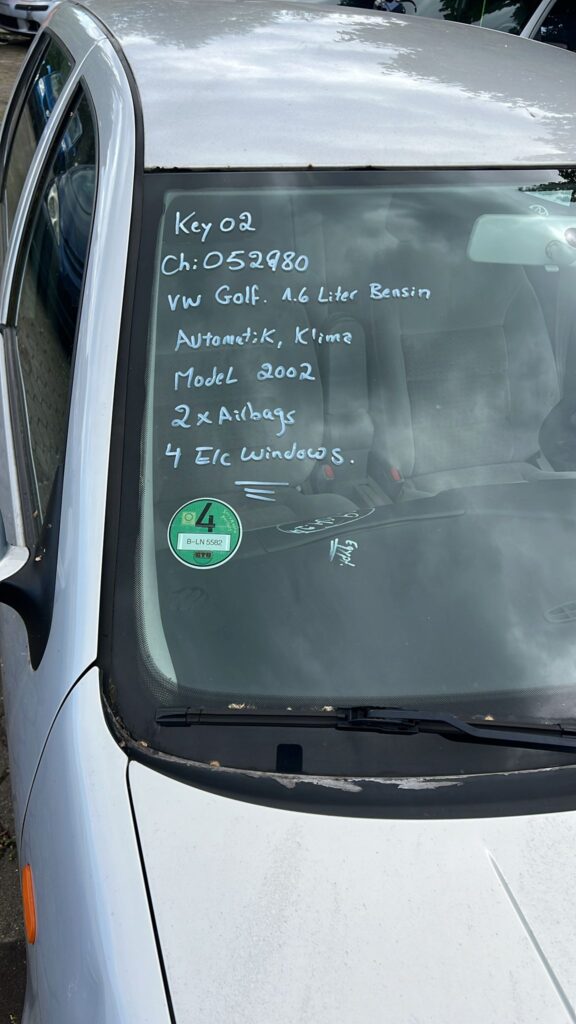 Key 02
Ch: 052980
VW Golf. 1.6 Liter Bensin
Automatik, Klima
Model 2002
2 x Airbags
4 Elc Windows.
4
B-LN 5582
GTÜ
Egypt